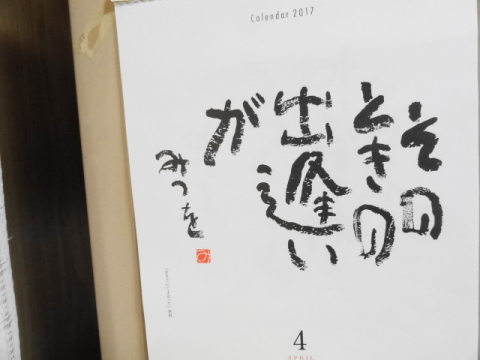 Calendar 2017
その
ときの
出逢い
が
みつを
4
APRIL